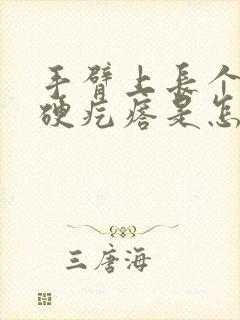 手臂上長个
硬疙瘩是怎
三唐海